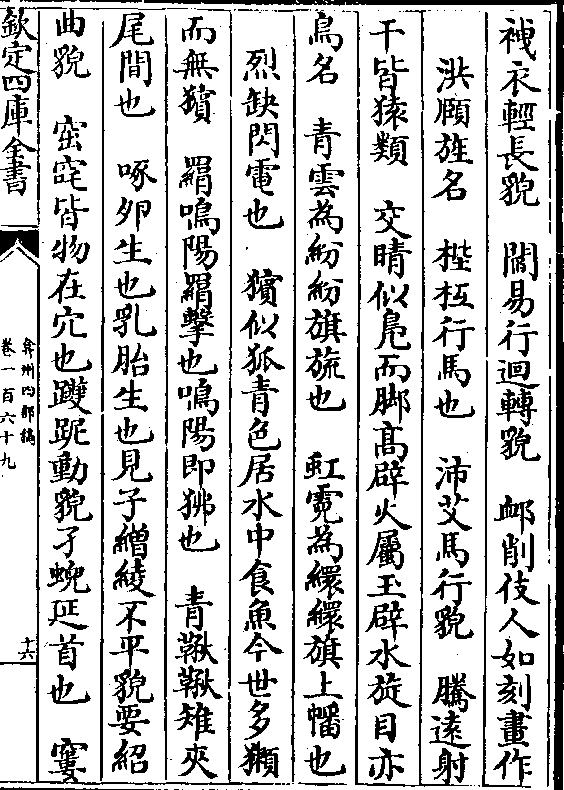 䙝衣輕長貌　閻易行迴轉貌　䘏削伎人如刻畫作
洪頤旌名　梐枑行馬也　沛艾馬行貌　騰逺射
干皆猿類　交睛似鳬而脚髙辟火屬玉辟水旋目亦
鳥名　青雲為紛紛旗旒也　虹霓為繯繯旗上幡也
烈缺閃電也　獱似狐青色居水中食魚今世多獺
而無獱　羂鳴陽羂擊也鳴陽即狒也　青鞦鞦雉夾
尾間也　啄夘生也乳胎生也見子繒綾不平貌要紹
曲貌　窋窕皆物在穴也躨跜動貌孑蜺延首也　窶
欽定四庫全書
弇州四部稿
卷一百六十九
十六